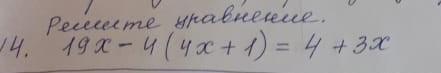 Решите уравнение.
14. 19x - 4(4x + 1) = 4 + 3x